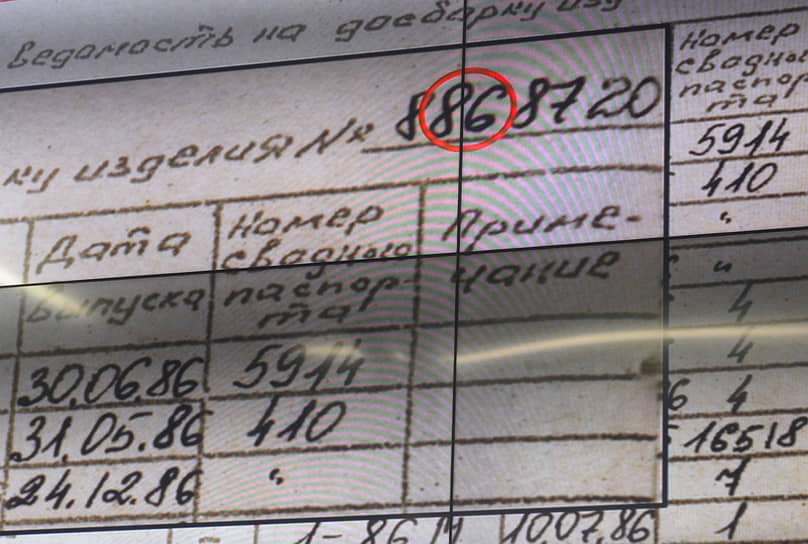 ведомость на досборку изд
ку изделия № 8868720
Дата
выпуска
Номер
сводного
паспор-
та
Приме-
чание
30.06.86 5914
31.05.86 410
24.12.86 "
Номер
сводно
паспор
та
5914
410
"
"
4
4
6 4
16518
7
1
1-86 10.07.86